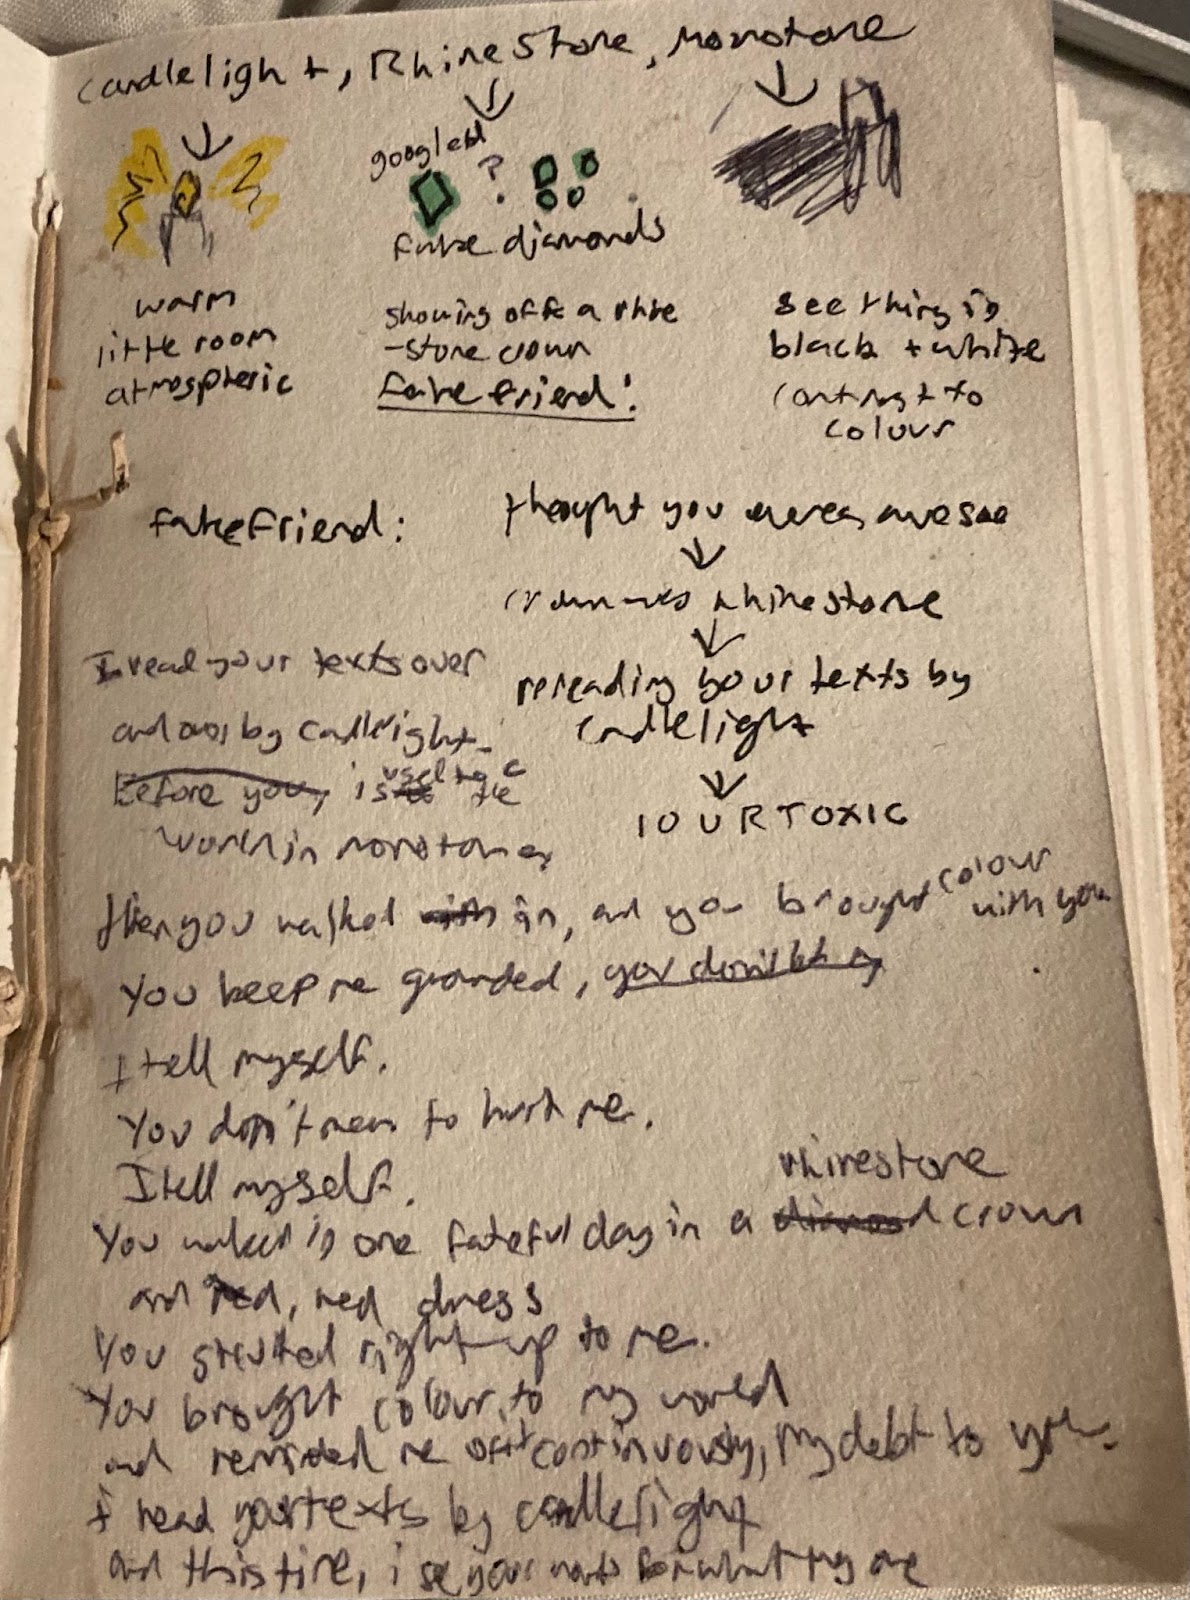 candlelight, Rhinestone, monotone
googled ?
fake diamonds
warm
little room
atmospheric
showing off a rhine
-stone crown
fake friend!
see thing in
black + white
contrast to
colour
fake friend:
thought you were awesome
↓
crown was rhinestone
↓
rereading your texts by
candlelight
↓
YOUR TOXIC
I read your texts over
and over by candlelight.
Before you, i used to see the
world in monotone,
then you walked with in, and you brought colour with you
You keep me grounded, you don't
I tell myself.
You don't mean to hurt me.
I tell myself.
You walked in one fateful day in a diamond rhinestone crown
and red, red dress
You strutted right up to me.
You brought colour to my world
and reminded me of it continuously, my debt to you.
I read your texts by candlelight
and this time, i see your words for what they are